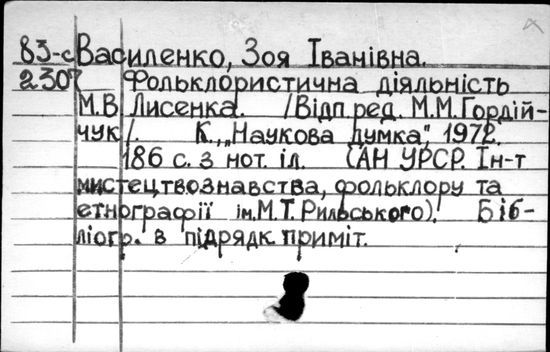 83-с Василенко, Зоя Іванівна.
2307 Фольклористична діяльність
М.В Лисенка. /Відп ред. М.М.Гордій-
чук/. К., „Наукова думка", 1972.
186 с. з нот. іл. (АН УРСР. Ін-т
мистецтвознавства, фольклору та
етнографії ім.М.Т.Рильського). Біб-
ліогр. в підрядк. приміт.